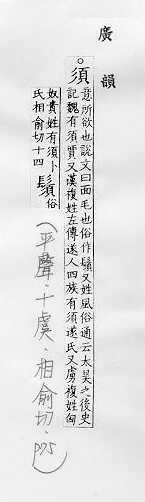 廣韻
。須 意所欲也說文曰面毛也俗作鬚又姓風俗通云太昊之後史
記魏有須賈又漢複姓左傳遂人四族有須遂氏又虜複姓匈
奴貴姓有須卜
氏相俞切十四 鬚俗
(平聲.十虞.相俞切.p75)